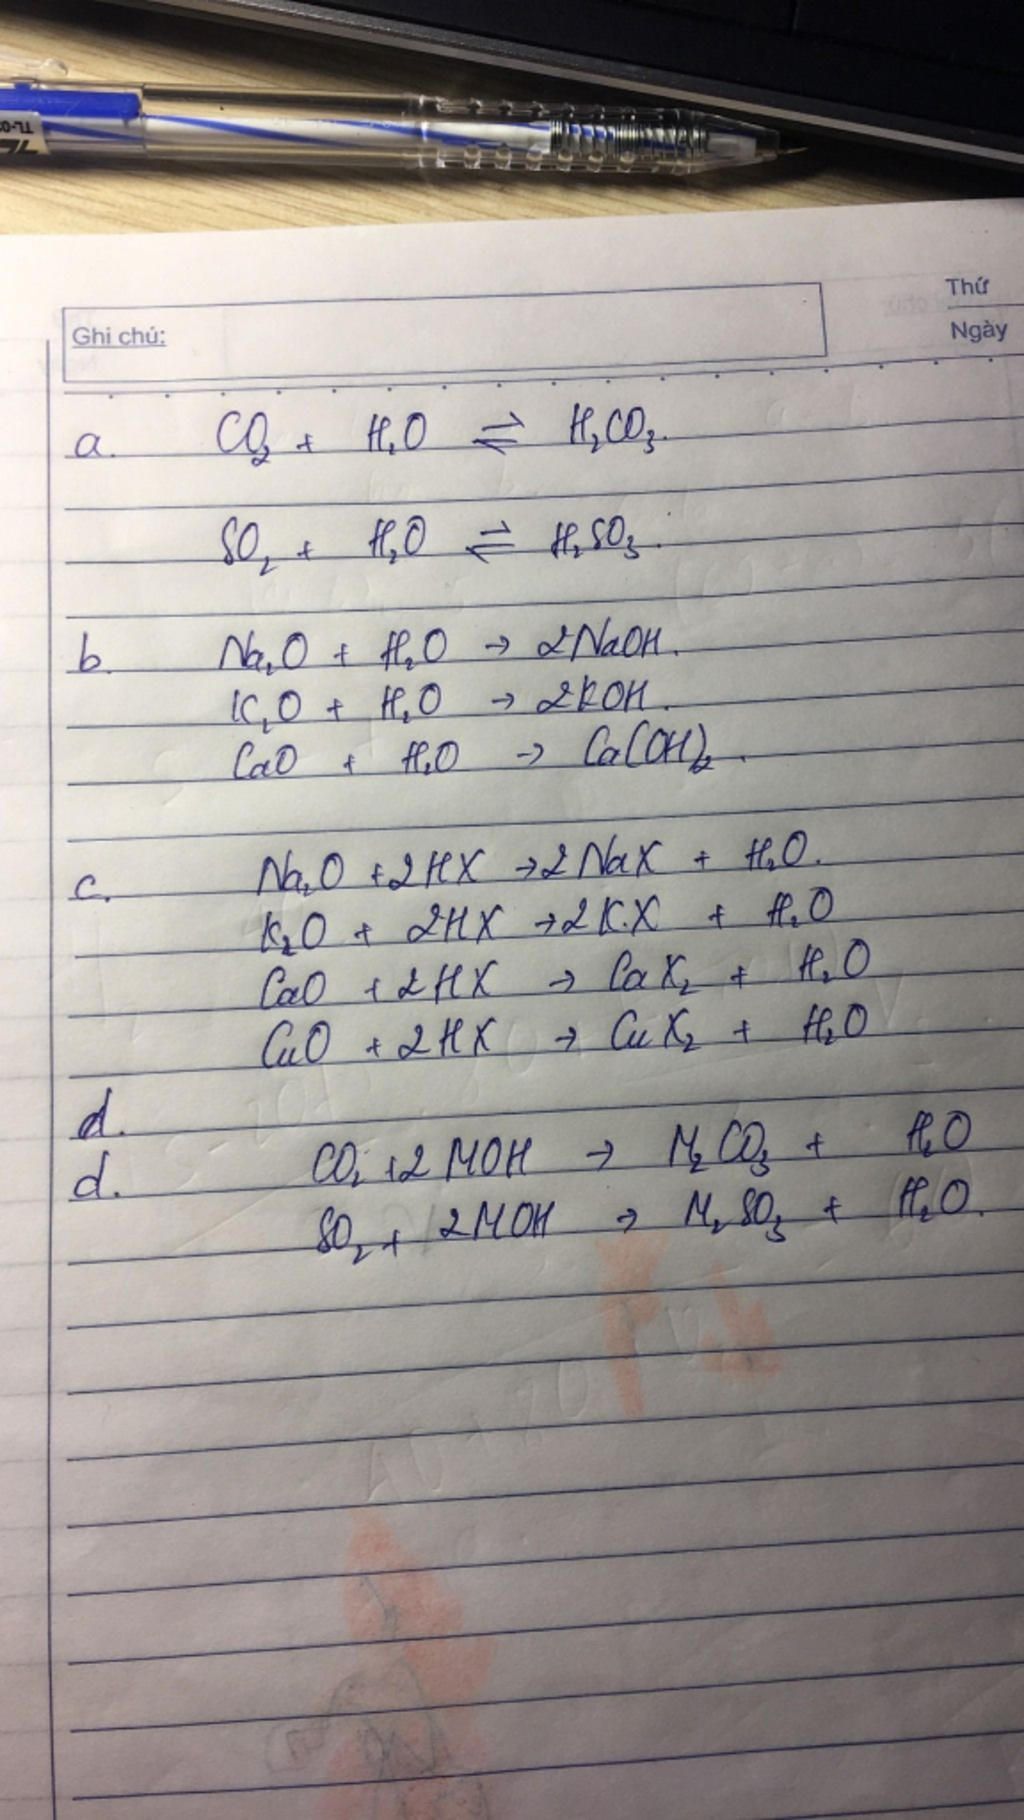 TL-0
Thứ
Ghi chú:
Ngày
a. CO₂ + H₂O ⇌ H₂CO₃.
SO₂ + H₂O ⇌ H₂SO₃.
b. Na₂O + H₂O → 2NaOH.
K₂O + H₂O → 2KOH.
CaO + H₂O → Ca(OH)₂.
c. Na₂O + 2HX → 2NaX + H₂O.
K₂O + 2HX → 2K.X + H₂O
CaO + 2HX → CaX₂ + H₂O
CuO + 2HX → CuX₂ + H₂O
d.
d. CO₂ + 2MOH → M₂CO₃ + H₂O
SO₂ + 2MOH → M₂SO₃ + H₂O.